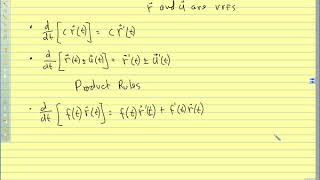 r⃗ and u⃗ are vvfs
• d/dt [c r⃗(t)] = c r⃗'(t)
• d/dt [r⃗(t) ± u⃗(t)] = r⃗'(t) ± u⃗'(t)
Product Rules
• d/dt [f(t) r⃗(t)] = f(t) r⃗'(t) + f'(t) r⃗(t)